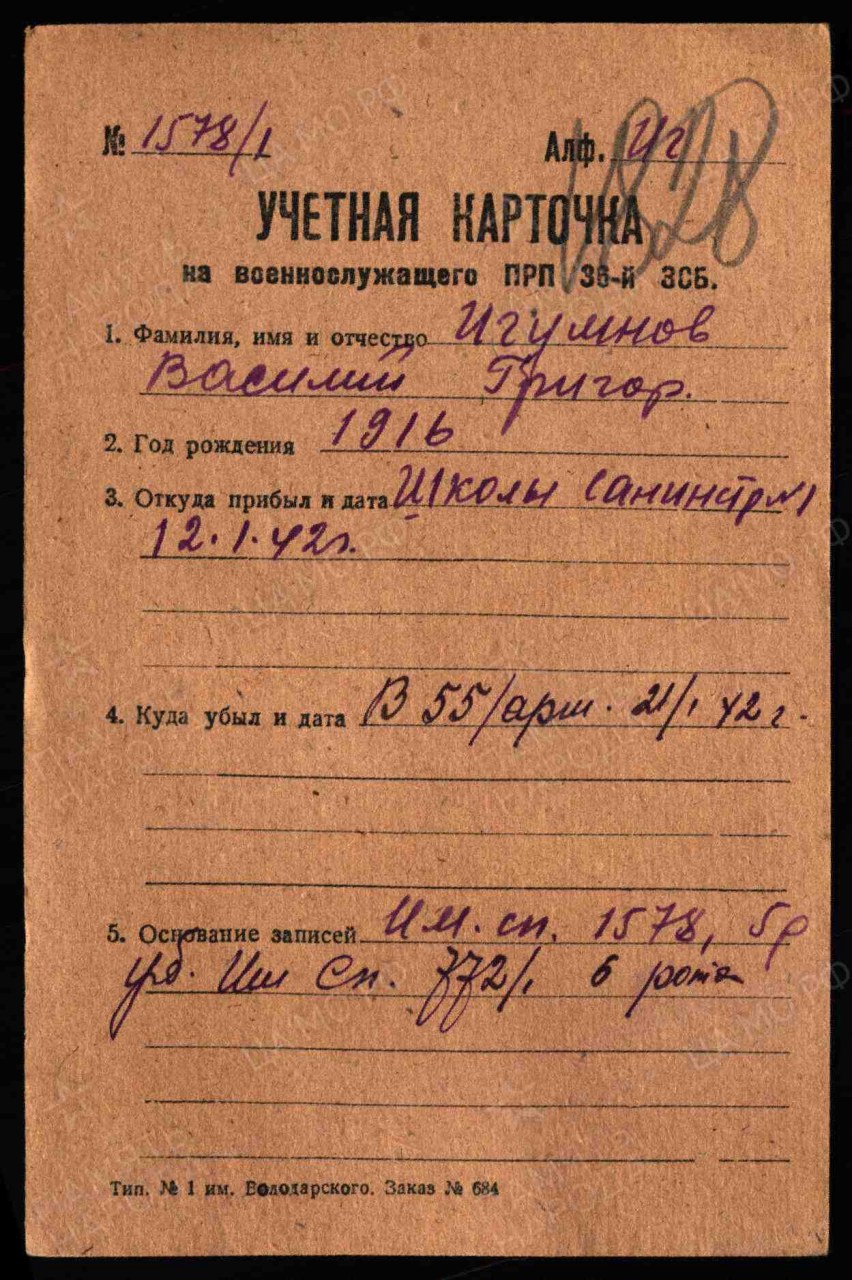 № 1578/1 Алф. Иг
1828
УЧЕТНАЯ КАРТОЧКА
на военнослужащего ПРП 36-й ЗСБ.
1. Фамилия, имя и отчество Игумнов
Василий Григор.
2. Год рождения 1916
3. Откуда прибыл и дата Школы санинстр №1
12.1.42г.
4. Куда убыл и дата В 55/арм. 21/1 42 г.
5. Основание записей Им. сп. 1578, 5р
уб. Им Сп. 772/1 6 рота
Тип. № 1 им. Володарского. Заказ № 684